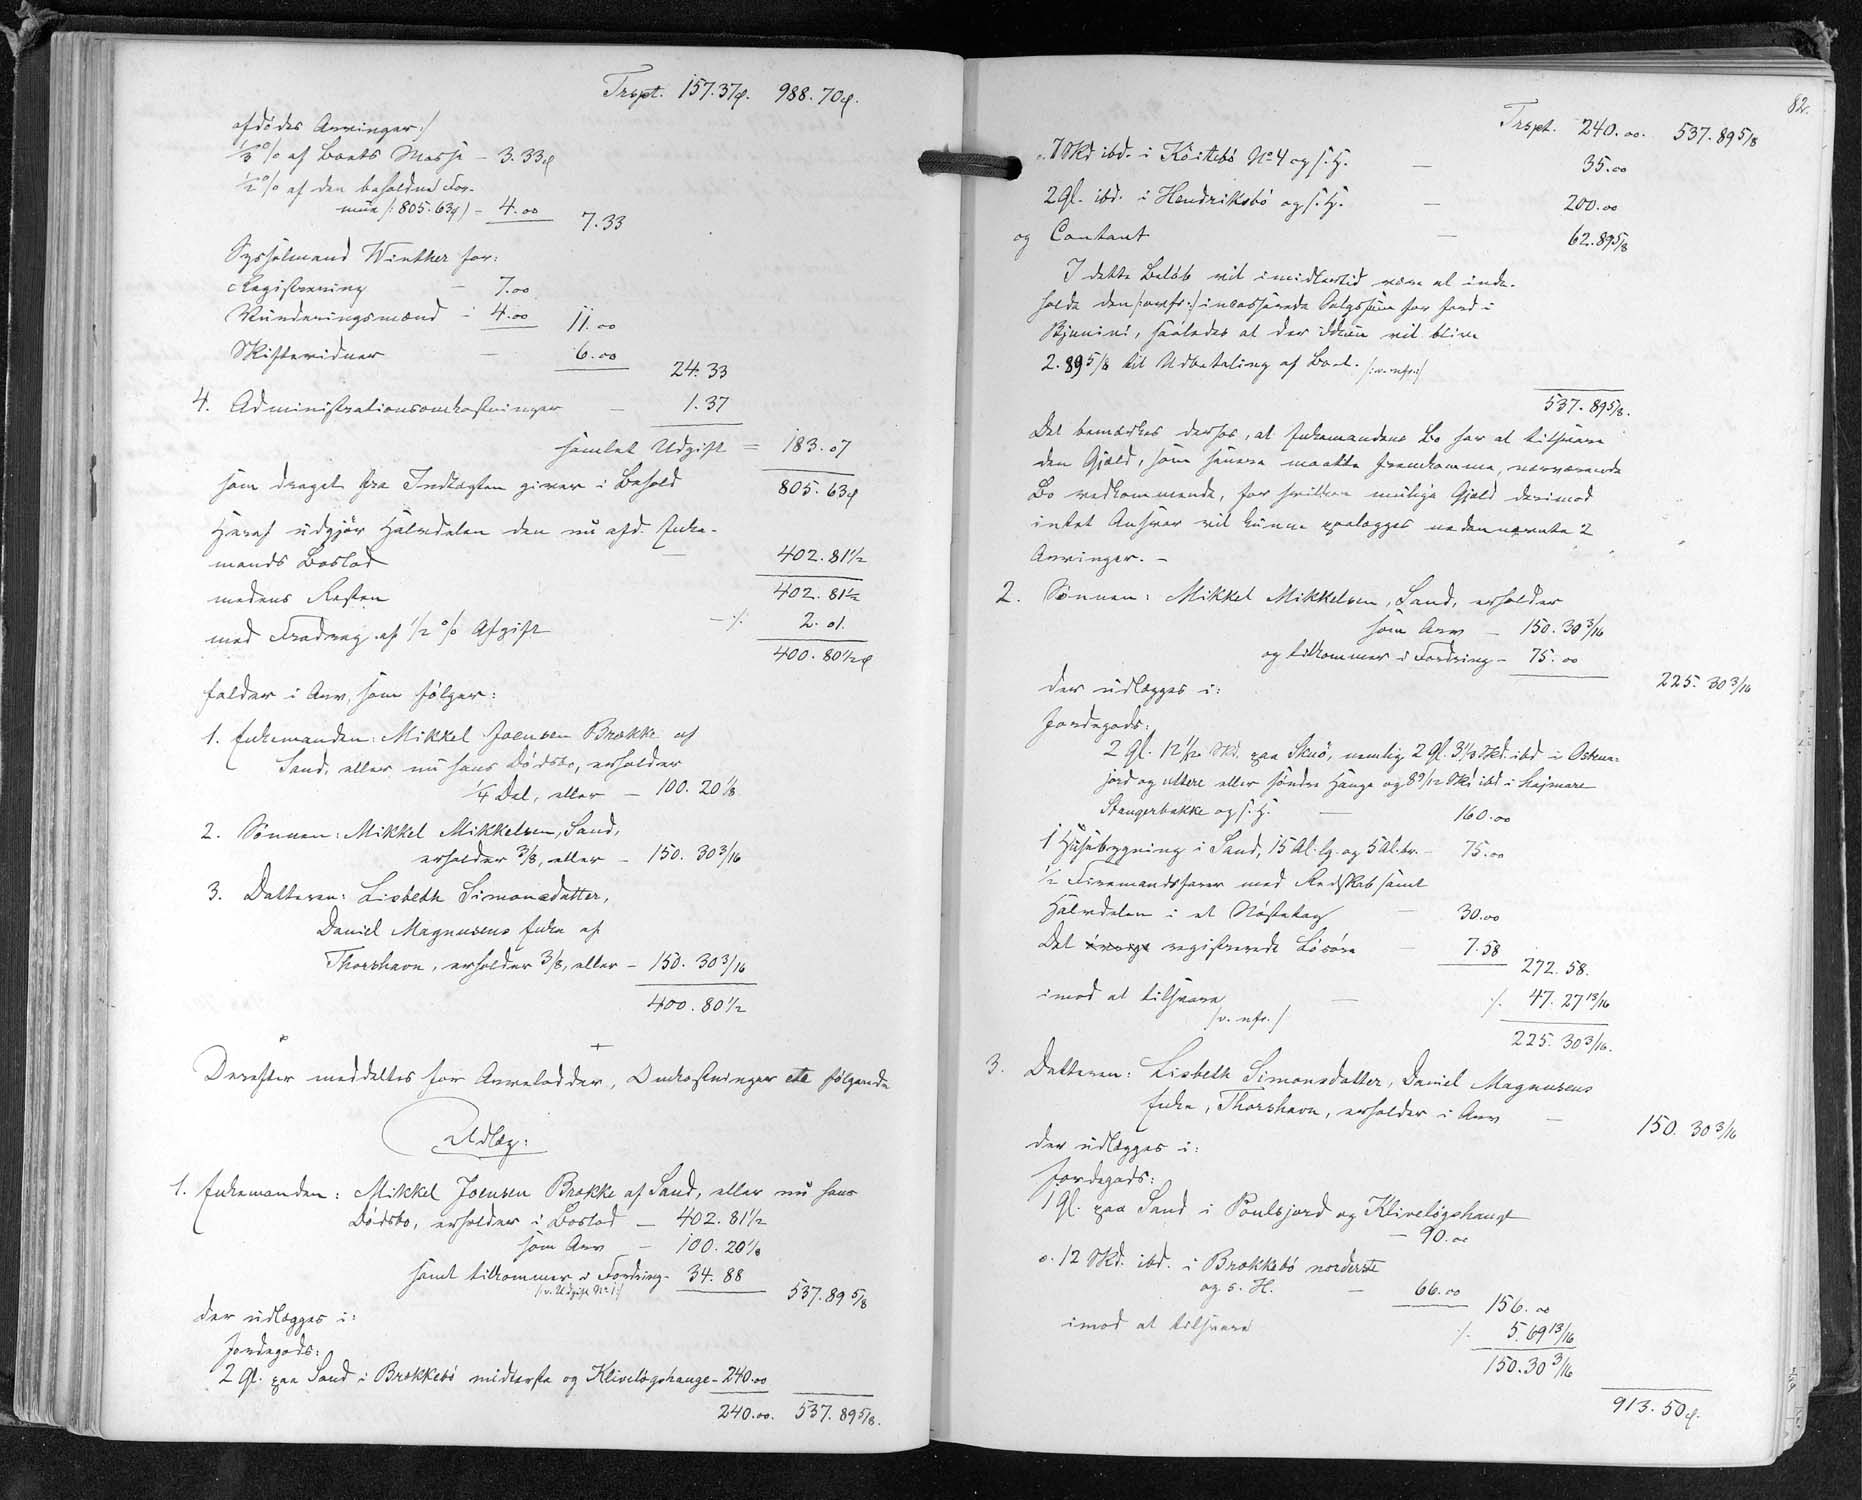 Trspt. 157.37ø. 988.70ø.
afdødes Arvinger:/
1/3 % af Boets Masse – 3.33ø
1/2 % af den beholdne For-
mue /:805.63ø/ – 4.00 7.33
Sysselmand Winther for:
Registrering – 7.00
Vurderingsmænd – 4.00 11.00
Skiftevidner – 6.00
24.33
4. Administrationsomkostninger – 1.37
samlet Udgift = 183.07
som draget fra Indtægten giver i Behold 805.63ø
Heraf udgjør Halvdelen den nu afd. Enke-
mands Boslod – 402.81 1/2
medens Resten 402.81 1/2
med Fradrag af 1/2 % Afgift –/. 2.01.
400.80 1/2 ø
falder i Arv, som følger:
1. Enkemanden: Mikkel Joensen Brække af
Sand, eller nu hans Dødsbo, erholder
1/4 Del, eller – 100.20 1/8
2. Sønnen: Mikkel Mikkelsen, Sand,
erholder 3/8, eller – 150.30 3/16
3. Datteren: Lisbeth Simonsdatter,
Daniel Magnusens Enke af
Thorshavn, erholder 3/8, eller – 150.30 3/16
400.80 1/2
Derefter meddeltes for Arvelodder, Omkostninger etc følgende
Udlæg:
1. Enkemanden: Mikkel Joensen Brække af Sand, eller nu hans
Dødsbo, erholder i Boslod – 402.81 1/2
som Arv – 100.20 1/8
samt tilkommer i Fordring – 34.88
/:v. Udgift No 1:/ 537.89 5/8
der udlægges i:
Jordegods:
2 Gl. paa Sand i Brekkebö midterste og Kliveløgshauge – 240.00
240.00. 537.89 5/8.
82.
Trspt. 240.00. 537.89 5/8
7 Skd ibd. i Köitebö No 4 og s. H. – 35.00
2 Gl. ibd. i Hendriksbö og s. H. – 200.00
og Contant – 62.89 5/8
I dette Beløb vil imidlertid være at inde-
holde den /:ovfr:/ incasserede Salgssum for Jord i
, saaledes at der vil blive
2.89 5/8 til Udbetaling af Boet. /:v. nfr:/
537.89 5/8.
Det bemærkes derhos, at Enkemandens Bo har at tilsvare
den Gjæld, som senere maatte fremkomme, nærværende
Bo vedkommende, for hvilken mulige Gjæld derimod
intet Ansvar vil kunne paalægges nedennævnte 2
Arvinger. –
2. Sønnen: Mikkel Mikkelsen, Sand, erholder
som Arv – 150.30 3/16
og tilkommer i Fordring – 75.00
225.30 3/16
der udlægges i:
Jordegods:
2 Gl. 12 1/12 Skd. paa Skuö, nemlig 2 Gl. 3 1/3 Skd. ibd i Osten-
jord og ytere eller söndre Hauge og 8 9/12 Skd ibd i Hejmare
Stangerbakke og s. H. – 160.00
1 Huusbygning i Sand, 15 Al. lg. og 5 Al. br. – 75.00
1/2 Firemandsfarer med Redskab samt
Halvdelen i et Nöstetag – 30.00
Det øvrige registrerede Løsøre – 7.58
272.58.
imod at tilsvare – /. 47.27 13/16
/v. nfr./
225.30 3/16.
3. Datteren: Lisbeth Simonsdatter, Daniel Magnusens
Enke, Thorshavn, erholder i Arv – 150.30 3/16
der udlægges i:
Jordegods:
1 Gl. paa Sand i Poulsjord og Kliveløgshaugt
– 90.00
o. 12 Skd. ibd. i Brekkebö norderste
og s. H. – 66.00
156.00
imod at tilsvare /. 5.69 13/16
150.30 3/16
913.50ø.